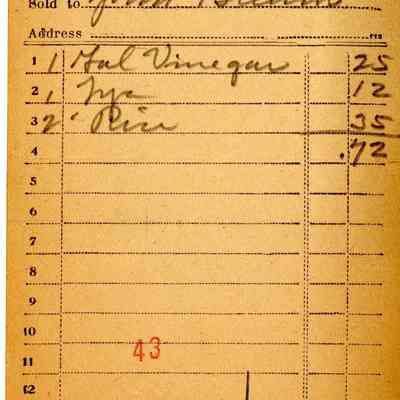 Sold to
Address
1 1 Gal Vinegar 25
2 1 12
3 2 Rice 35
4 .72
5
6
7
8
9
10
43
11
12